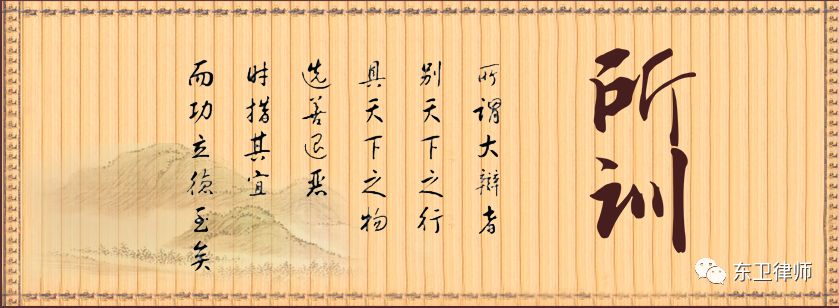 所训
所谓大辩者
别天下之行
具天下之物
选善退恶
时措其宜
而功立德至矣
东卫律师